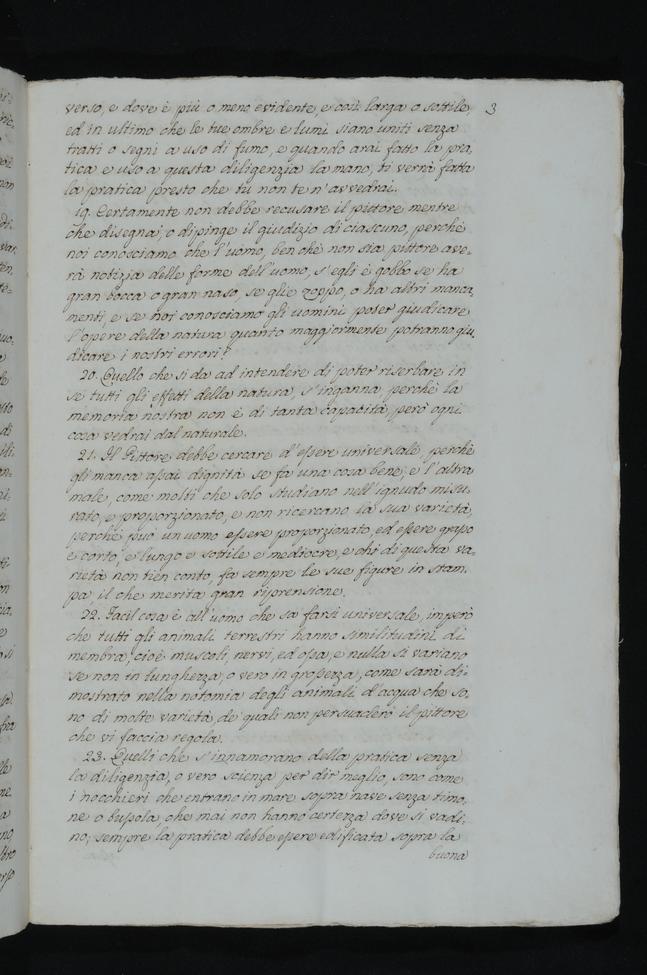 verso, e dove è più o meno evidente, e così larga o sottile, 3
ed in ultimo che le tue ombre e lumi siano uniti senza
tratti o segni a uso di fumo, e quando arai fatto la pra,
tica e uso a questa diligenzia la mano, ti verrà fatta
la pratica presto che tu non te n'avvedrai.
19. Certamente non debbe recusare il pittore mentre
che disegna, o dipinge il giudizio di ciascuno, perchè
noi conosciamo che l'uomo, ben chè non sia pittore ave-
rà notizia delle forme dell'uomo, s'egli è gobbo se ha
gran bocca o gran naso, se gliè zoppo, o ha altri manca,
menti, e se noi conosciamo gli uomini poter giudicare
l'opere della natura quanto maggiormente potranno giu,
dicare i nostri errori?
20. Quello che si da ad intendere di poter riserbare in
se tutti gli effetti della natura, s'inganna perchè la
memoria nostra non è di tanta capacità, però ogni
cosa vedrai dal naturale.
21. Il Pittore debbe cercare d'essere universale, perchè
gli manca assai dignità se fa una cosa bene, e l'altra
male, come molti che solo studiano nell'ignudo misu-
rato, e proporzionato, e non ricercano la sua varietà,
perchè può un uomo essere proporzionato, ed essere grosso
e corto, e lungo e sottile e mediocre, e chi di questa va-
rietà non tien conto, fa sempre le sue figure in stam,
pa il che merita gran riprensione.
22. Facil cosa è all'uomo che sa farsi universale, imperò
che tutti gli animali terrestri hanno similitudini di
membra, cioè muscoli, nervi, ed ossa, e nulla si variano
se non in lunghezza, o vero in grossezza, come sarà di-
mostrato nella notomia degli animali d'acqua che so,
no di molte varietà, de quali non persuaderò il pittore
che vi faccia regola.
23. Quelli che s'innamorano della pratica senza
la diligenzia, o vero scienza per dir meglio, sono come
i nocchieri che entrano in mare sopra nave senza timo,
ne o bussola, che mai non hanno certezza dove si vadi,
no; sempre la pratica debbe essere edificata sopra la
buona